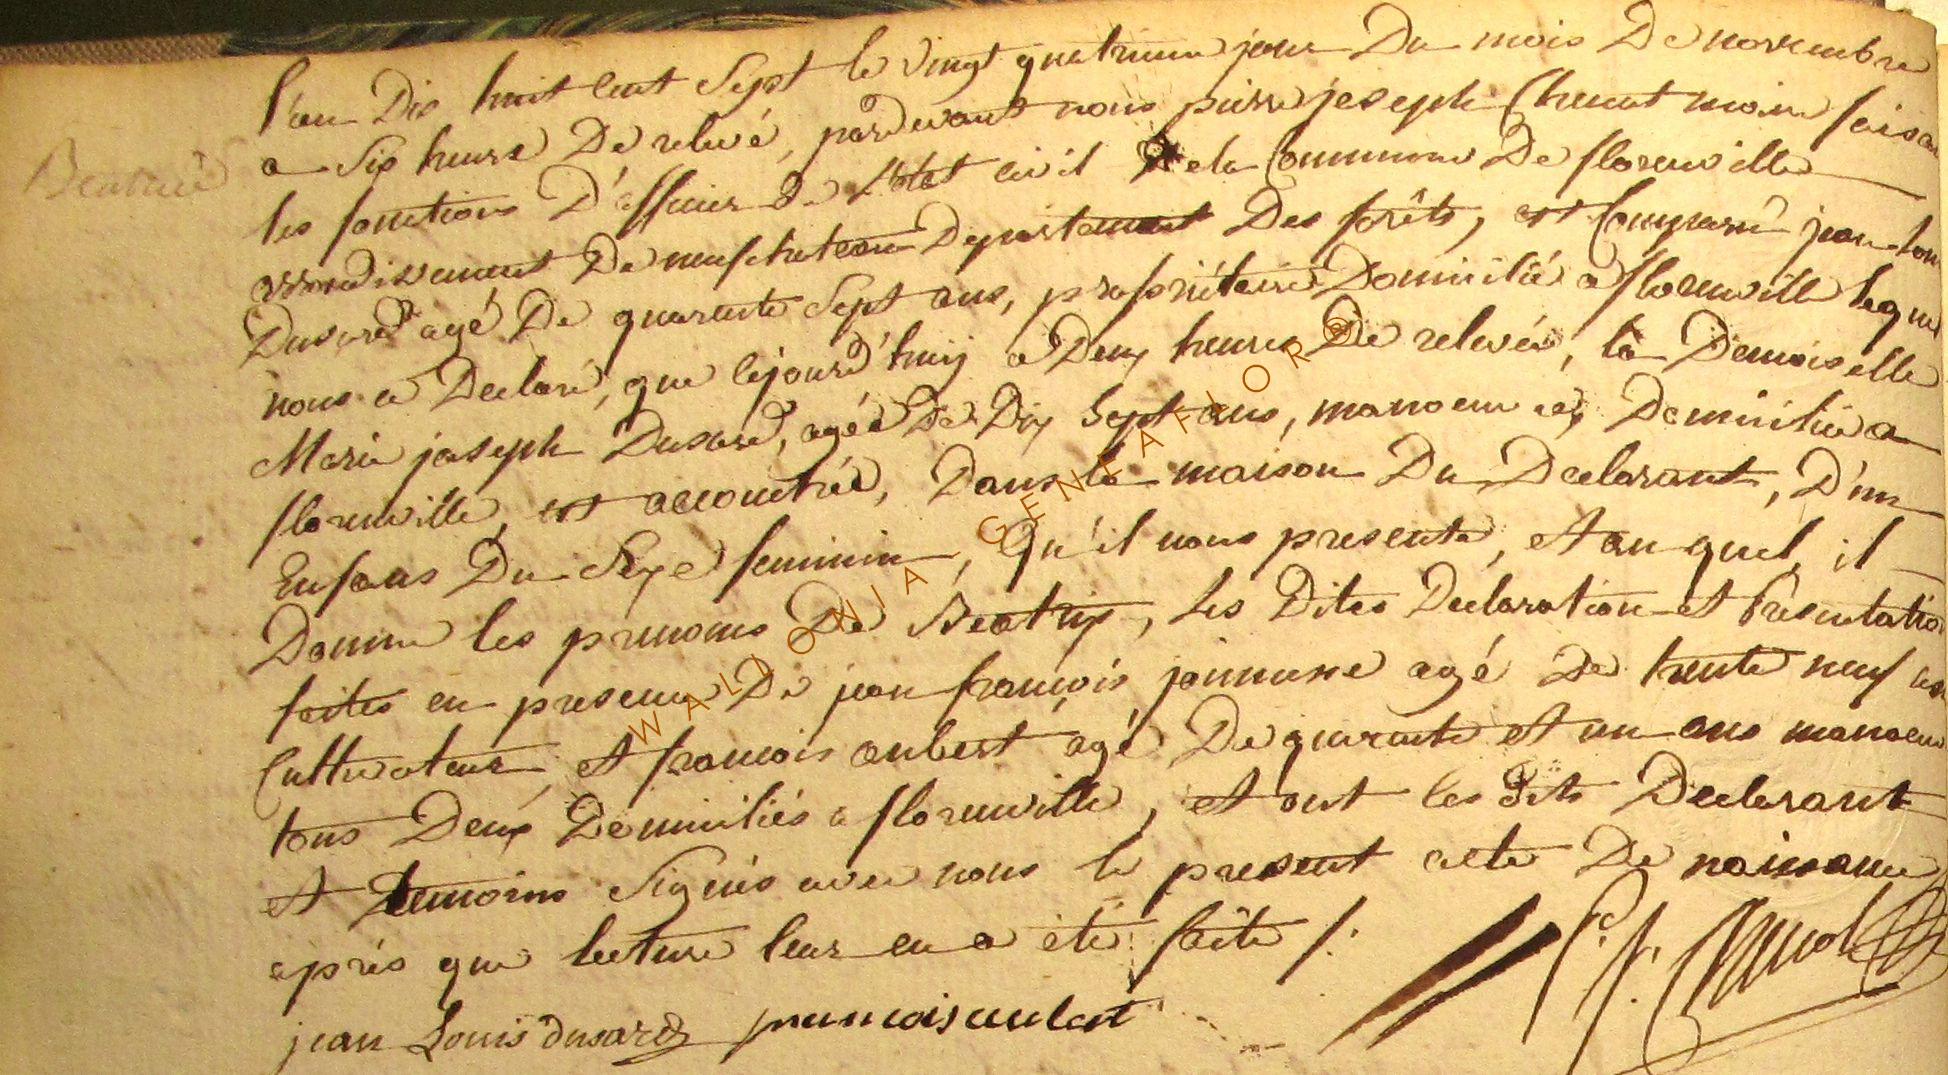 l'an Dix huit cent Sept le vingt quatrieme jour Du mois De novembre
a Six heure De relevé, pardevant nous pierre joseph maire faisan
Beatrice
les fonctions D'officier De l'etat civil Dela Commune De florenville
arrondissement De neufchateau Departement Des forêts, est Comparu jean lou
Dusard agé De quarente Sept ans, propriétaire Domicilié a florenville lequel
nous a Declaré, que cejourd'huy a Deux heures De relevée, la Demoiselle
Marie joseph Dusard, agée De Dix Sept ans, Domiciliée a
florenville, est accouchée, Dans la maison Du Declarant, D'un
Enfans Du Sexe feminin, Qu'il nous presente, et au quel il
Donne les prenoms De Beatrix, les Dites Declaration et Presentation
faites en presence De jean françois agé De trente neuf ans
Cultivateur, et francois aubert agé De quarante et un ans manoeuv
tous Deux Domiciliés a florenville, et ont les Dits Declarant
et temoins Signés avec nous le present acte De naissance
après que lecture leur en a été faite /.
jean Louis dusard francois aubert
P. J.
WALLONIA - GENEAFLOR®